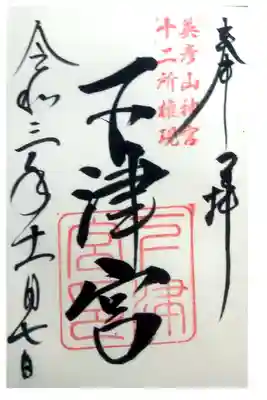 奉拝
英彦山神宮
十二所権現
下津宮
令和三年十一月七日